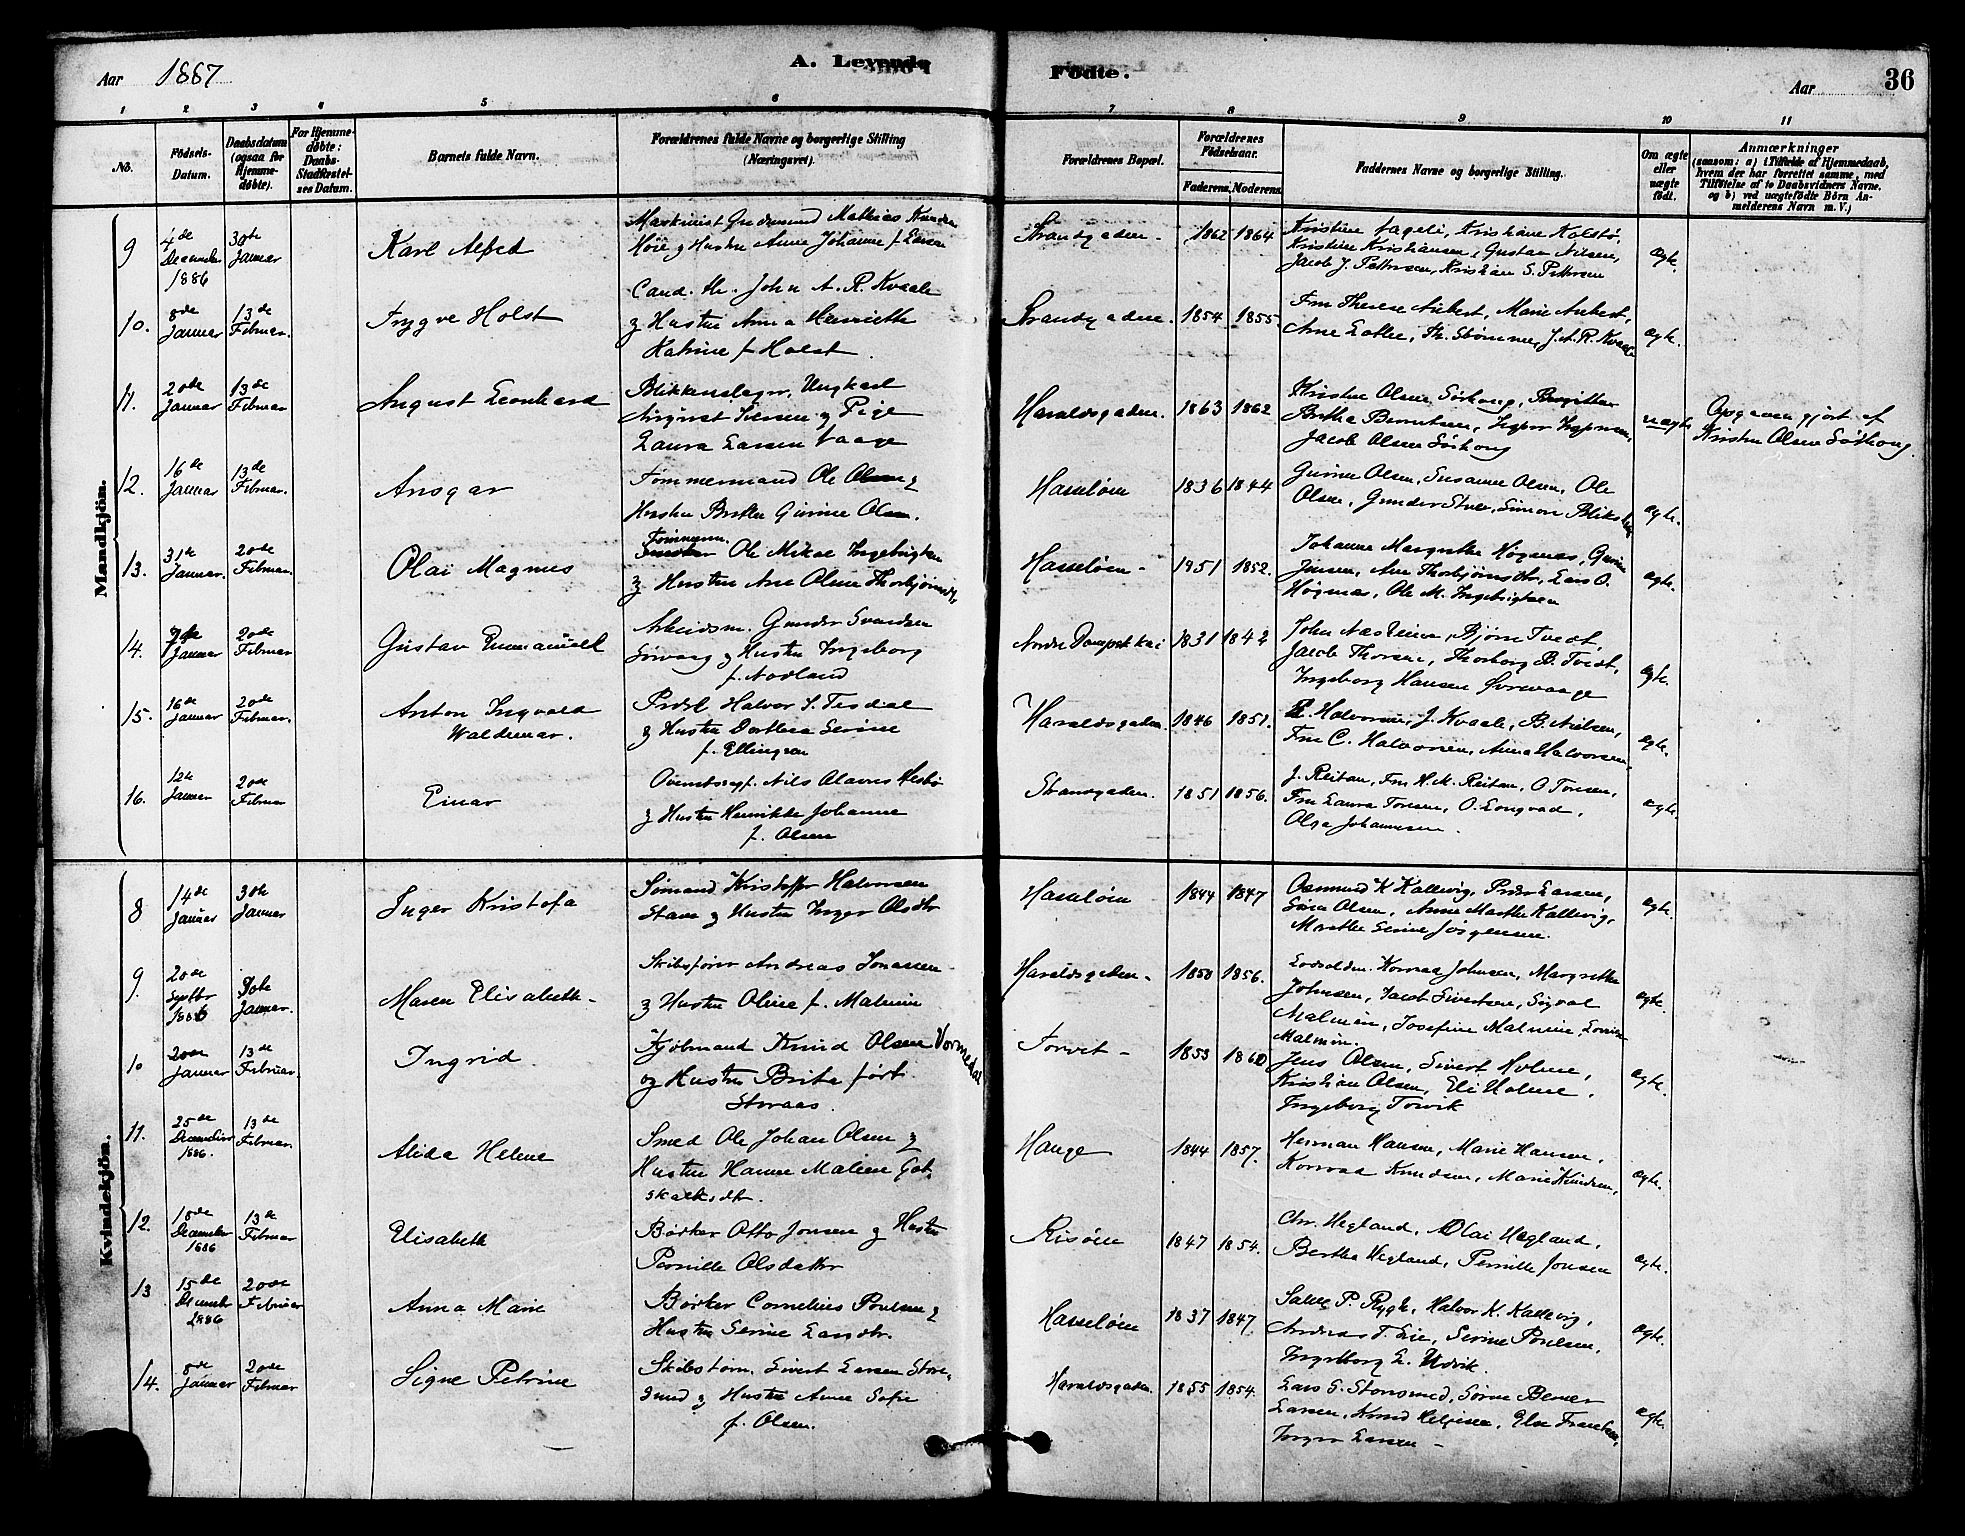 Aar 1887
A. Levende
Fødte.
Aar
36
1 2 3 4 5 6 7 8 9 10 11
No.
Fødsels-
Datum.
Daabsdatum
(ogsaa for
Hjemme-
døbte).
For Hjemme-
døbte:
Daabs-
Stadfæstel-
ses Datum.
Barnets fulde Navn.
Forældrenes fulde Navne og borgerlige Stilling
(Næringsvei).
Forældrenes Bopæl.
Forældrenes
Fødselsaar.
Faderens. Moderens.
Faddernes Navne og borgerlige Stilling.
Om ægte
eller
uægte
født.
Anmærkninger
(saasom: a) i Tilfælde af Hjemmedaab,
hvem der har forrettet samme, med
Tilføielse af to Daabsvidners Navne,
og b) ved uægtefødte Børn An-
melderens Navn m. V.)
Mandkjön.
9
4de
December
1886
30te
Januar
Karl Alfred
Gudmund Mathias Knudsen
Høie g Hustru Anne Johanne f. Larsen
Strandgaden -
1862 1864
Kristian Kolstø,
Kristine Kristiansen, Gustav Nilsen,
Jacob J. Pettersen, Kristian S. Pettersen
ægte.
10.
8de
Januar
13de
Februar.
Trygve Holst
Cand. th. John A. R. Kvaale
g Hustru Anna Henriette
Katrine f. Holst.
Strandgaden.
1854 1855.
Fru Therese Aubert, Marie Aubert,
J. A. R. Kvaale
ægte.
11.
20de
Januar
13de
Februar
August Leonhard
Blikkenslager, Ungkarl
August Iversen g Pige
Laura Larsen Vaage
Haraldsgaden.
1863 1862
Kristen Olsen Sørhoug, Birgitte
Jacob Olsen Sørhoug
uægte
Opgaven gjort af
Kristen Olsen Sørhoug.
12.
16de
Januar
13de
Februar.
Ansgar
Tømmermand Ole Olsen g
Hustru Gurine Olsen.
Hasseløen
1836 1844
Gurine Olsen, Susanne Olsen, Ole
Olsen, Simon
ægte.
13.
31te
Januar.
20de
Februar.
Olai Magnus
Tømmerm. Ole Mikal Ingebrigtsen
g Hustru Ane Oline Thorbjørnsdtr.
Hasseløen -
1951 1852.
Johanne Margrethe Høgnæs,
Jensen, Ane Thorbjørnsdtr, Lars O.
Høgnæs, Ole M. Ingebrigtsen
ægte.
14.
Januar
20de
Februar
Gustav Emmanuell
Arbeidsm. Gunder Svendsen
Sørvaag g Hustru Ingeborg
f. Nodland
Nordre Dampsk. kai
1831 1842
Bjørn Tvedt,
Jacob Thorsen, Thorborg B. Tvedt,
Ingeborg Hansen
ægte.
15.
16de
Januar
20de
Februar.
Anton Ingvald
Waldemar.
Halvor S. Tesdal
g Hustru Dorthea Serine
f. Ellingsen
Haraldsgaden
1846 1851.
Halvorsen, J. Kvaale, B. Nielsen,
Fru C. Halvorsen, Anna Halvorsen,
ægte.
16.
12te
Januar
20de
Februar
Einar
Nils Olavus
g Hustru Henrikke Johanne
f. Olsen
Strandgaden.
1851 1856.
J. Reitan, Fru H. M. Reitan, O Tonsen,
Fru Laura Tonsen, O. Longvad,
Olga Johannesen.
ægte.
Kvindekjön.
8
14de
Januar
30te
Januar
Inger Kristofa
Sømand Kristoffer Halvorsen
Stava g Hustru Inger Olsdtr
Hasseløen
1844 1847
Osmund K Kallevig, Peder Larsen,
Olsen, Anne Marthe Kallevig,
Marthe Serine Jørgensen.
ægte.
9.
20de
Septbr
1886
30te
Januar.
Maren Elisabeth -
Skibsfører Andreas Jonassen
g Hustru Oline f. Malmin
Haraldsgaden -
1850 1856.
Konrad Johnsen, Margrethe
Johnsen, Jacob Sivertsen, Sigval
Malmin, Josefine Malmin,
Malmin.
ægte.
10
20de
Januar
13de
Februar.
Ingrid.
Kjøbmand Knud Olsen Vormedal
og Hustru Brita født
Storaas.
Torvet -
1853 1860
Jens Olsen, Sivert Holme,
Kristian Olsen, Eli Holme.
Ingeborg Torvik
ægte.
11.
25de
December
1886.
13de
Februar.
Alida Helene
Smed Ole Johan Olsen g
Hustru Hanne Malene Got-
skalksdtr.
Hauge
1844 1857.
Herman Hansen, Marie Hansen,
Konrad Knudsen, Marie Knudsen,
ægte.
12.
18de
December
1886
13de
Februar
Elisabeth
Bødker Otto Jonsen g Hustru
Pernille Olsdatter
Risøen
1847 1854.
Chr. Hegland, Olai Hegland,
Bertha Hegland, Pernille Jonsen
ægte.
13
15de
December
1886
20de
Februar
Anna Marie
Bødker Cornelius Poulsen g
Hustru Serine Larsdtr.
Hasseløen
1837 1847
P. Rygh, Halvor K. Kallevig,
Andreas T. Lie, Serine Poulsen,
Ingeborg L. Udvik.
ægte.
14.
8de
Januar
20de
Februar
Signe Petrine
Skibstøm. Sivert Larsen Store-
smed g Hustru Anne Sofie
f. Olsen.
Haraldsgaden.
1855 1854.
Lars S. Storesmed, Sørine
Larsen, Knud Helgesen, Else
Larsen -
ægte.